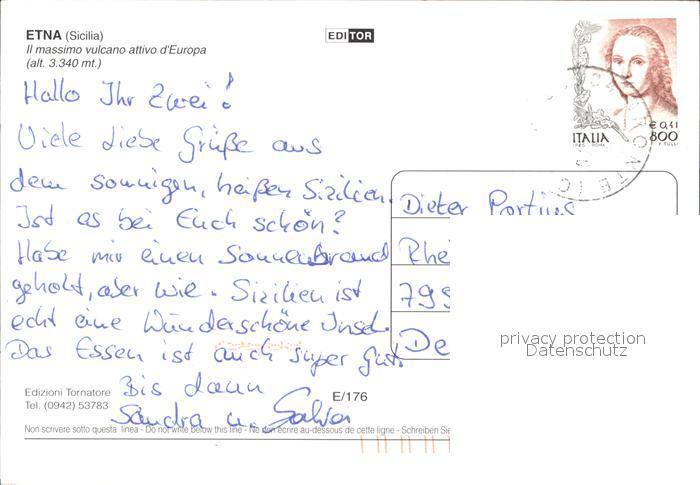 ETNA (Sicilia)
Il massimo vulcano attivo d'Europa
(alt. 3.340 mt.)
EDITOR
Hallo Ihr Zwei!
Viele liebe Grüße aus
dem sonnigen, heißen Sizilien.
Ist es bei Euch schön?
Habe mir einen Sonnenbrand
geholt, aber wie. Sizilien ist
echt eine Wunderschöne Insel.
Das Essen ist auch super gut.
Bis dann
Sandra u.
ITALIA
€ 0,41
800
Dieter
Rhe
799
De
privacy protection
Datenschutz
Edizioni Tornatore
Tel. (0942) 53783
E/176
Non scrivere sotto questa linea - Do not write below this line - Ne rien écrire au-dessous de cette ligne - Schreiben Sie